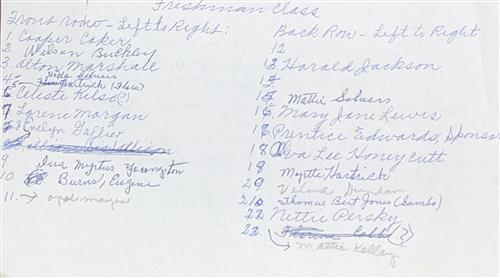 Freshman Class
Front row - Left to Right:
1. Cooper Cokery
2. Wilson Buckley
3. Alton Marshall
4. Veda Somers
5 Hartrick (Flora)
6 Celeste Kelso(?)
7 Lorene Morgan
8 Evelyn Gallier
9 Iva Myrtis Yovington
10 Burns, Eugene
11. → opal mays
Back Row - Left to Right
12
13 Harold Jackson
14
15 Mattie Somers
16 Mary Jane Lewis
17 Prentice Edwards, Sponsor
18 Alva Lee Honeycutt
19 Myrtle Hartrick
20 Velma Dunlan
21 Thomas Bert Jones (Sambo)
22 Nettie Persky
23. Cobb (?)
→ Mattie Kelley